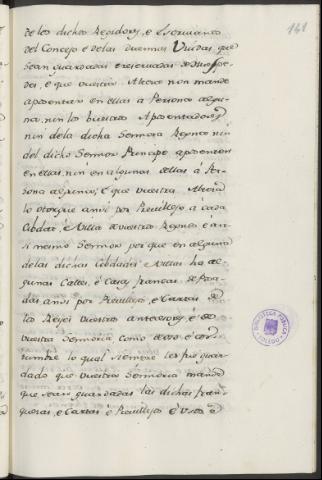 141
de los dichos Regidores, e Escrivanos
del Concejo e de las duennas Viudas que
sean guardadas e reservadas de Huespe-
des, e que vuestra Alteza non mande
aposentar en ellas a Persona algu-
na, nin los vuestros Aposentadores,
nin de la dicha Sennora Reyna nin
del dicho Sennor Principe aposenten
en ellas, nin en algunas dellas á Per-
sona alguna, é que vuestra Alteza
lo otorgue ansi por Previllejo á cada
Cibdad, é Villa de vuestros Regnos é an-
si mesmo Sennor por que en algunas
de las dichas Cibdades é Villas ha al-
gunas Calles, é Casas francas de Posa-
das ansi por Previllejos, é Cartas de
los Reyes vuestros antecesores, é de
vuestra Sennoria como de uso é cos-
tumbre lo qual siempre les fue guar-
dado que vuestra Sennoria mande
que sean guardadas las dichas fran-
quezas, e Cartas é Previllejos é usos é
BIBLIOTECA PUBLICA
TOLEDO